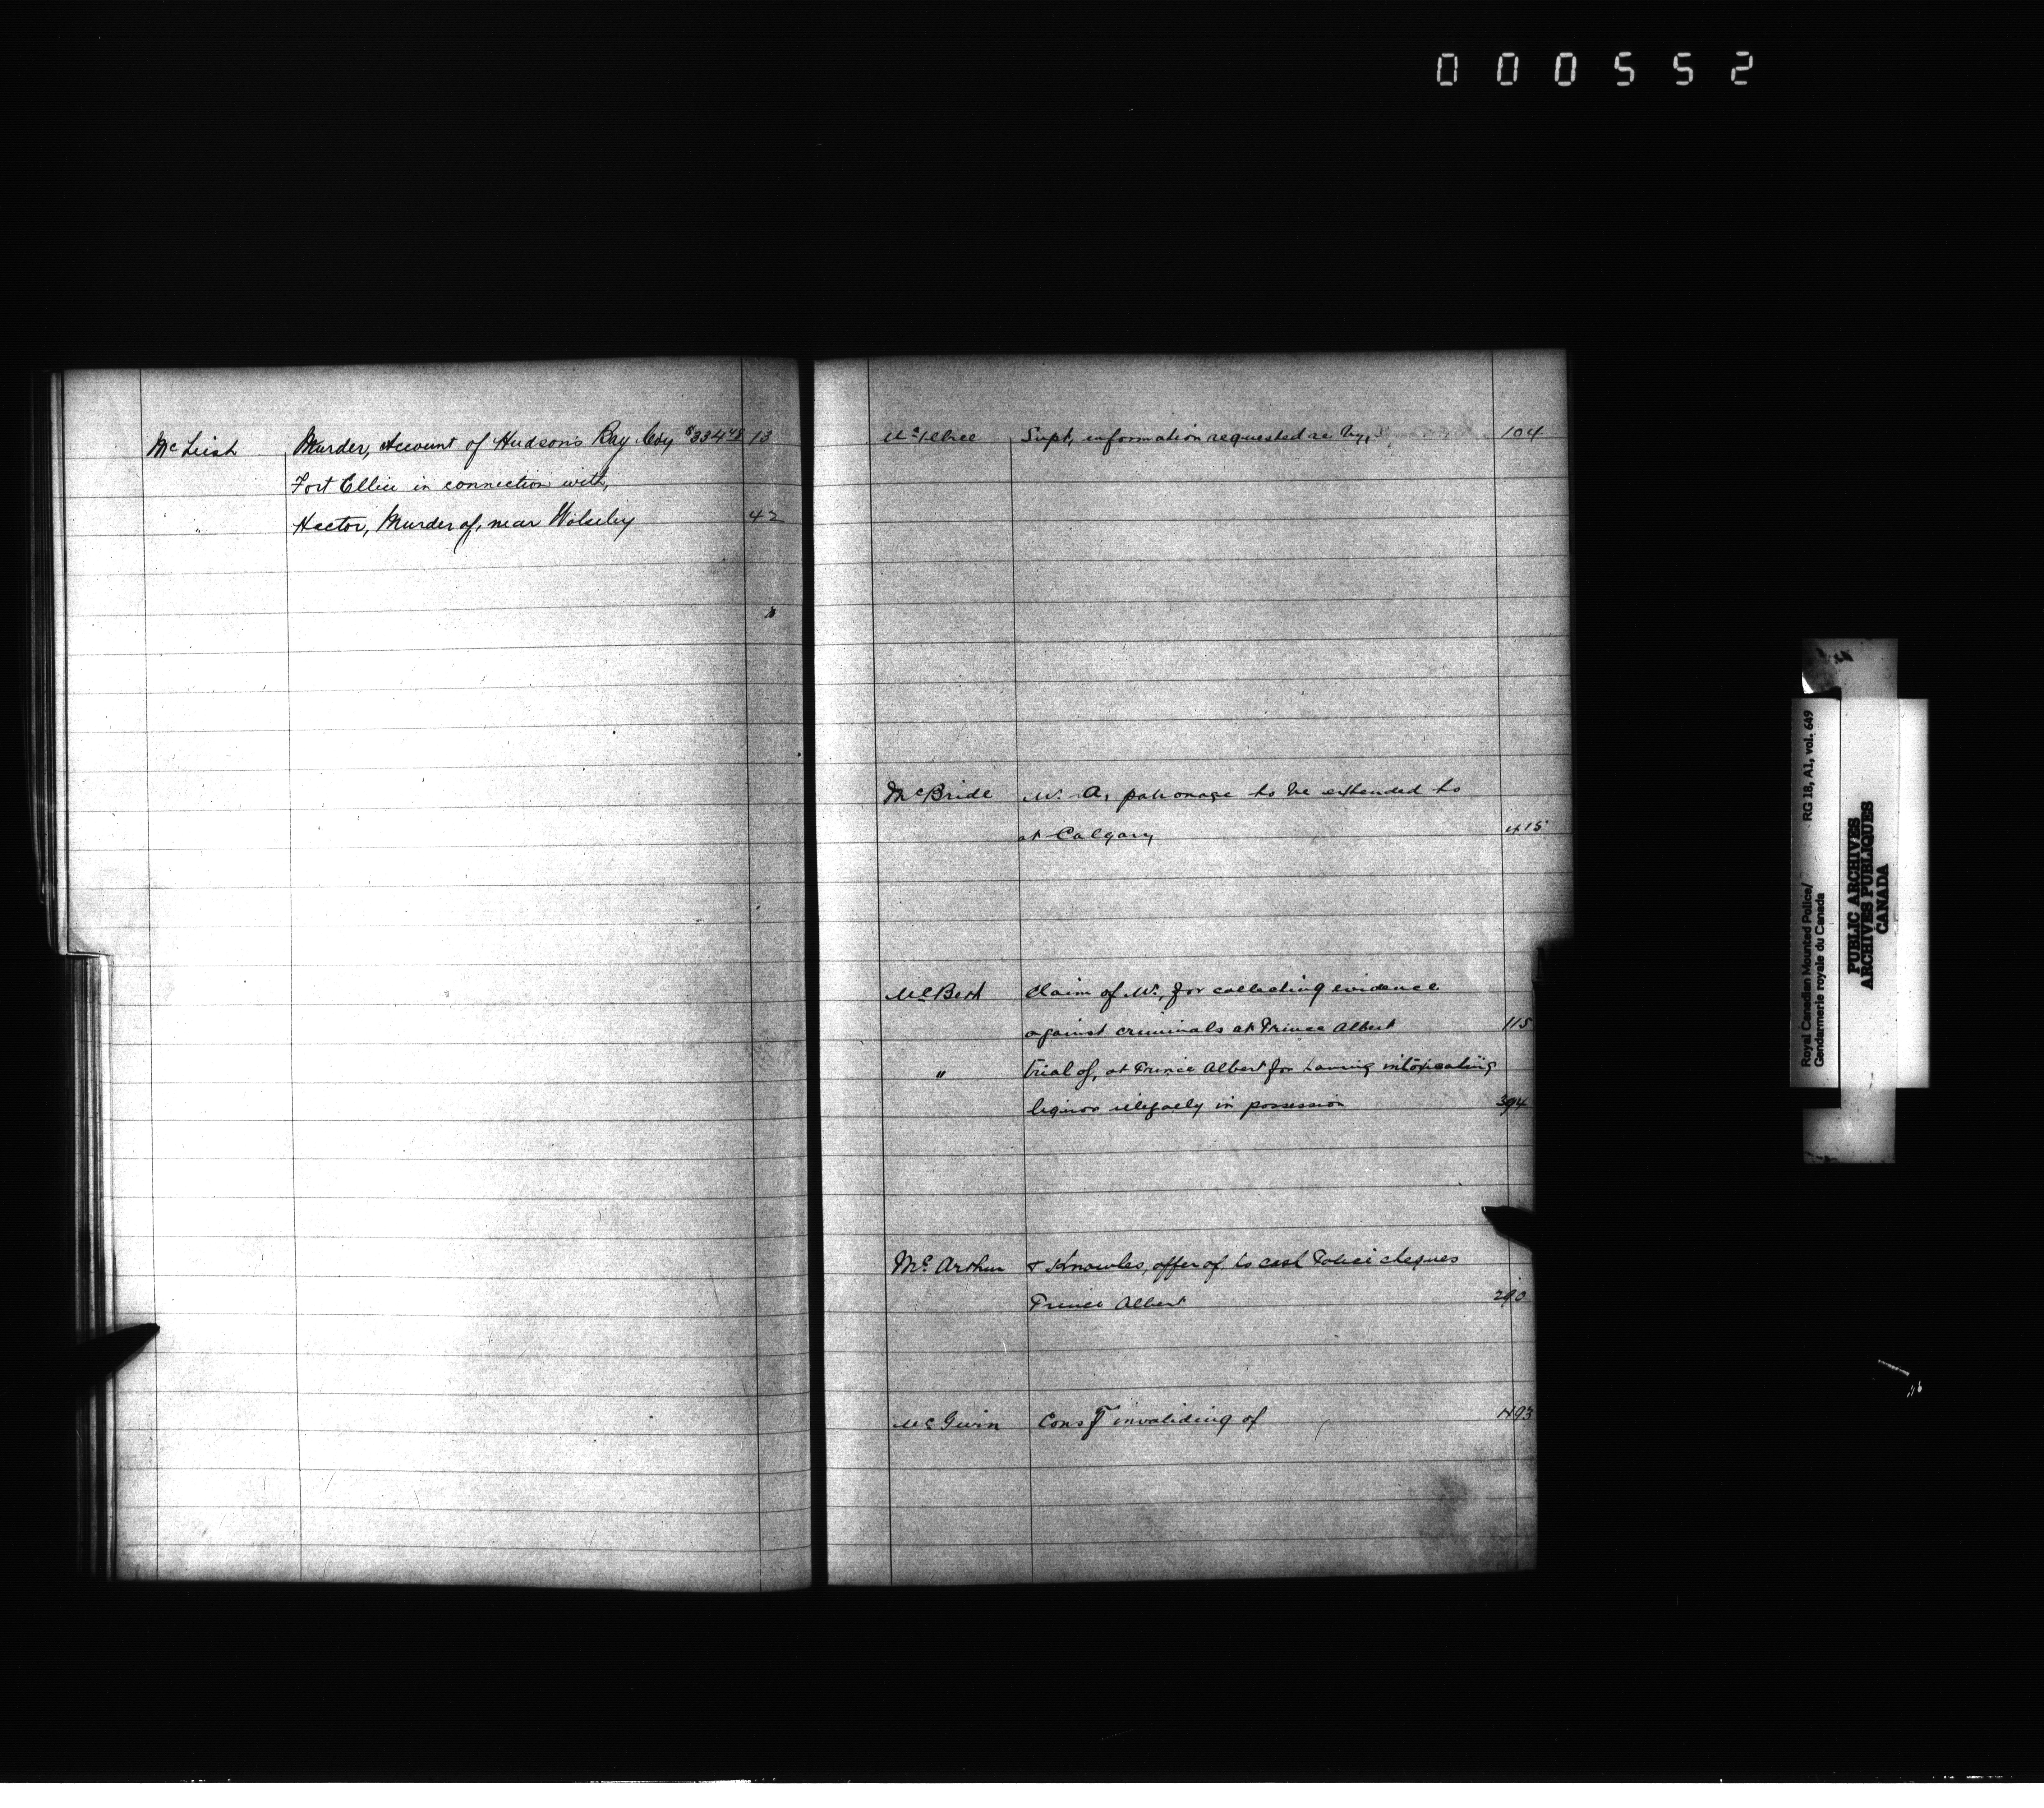 000552
McLeish Murder, Account of Hudson's Bay Coy $334.48 13
Fort Ellice in connection with,
" Hector, Murder of, near Wolseley 42
McIlree Supt, information requested re by, 104
McBride W. A, patronage to be extended to
at Calgary 415
McBeth Claim of W., for collecting evidence
against criminals at Prince Albert 115
" Trial of, at Prince Albert for having intoxicating
liquor illegally in possession 394
McArthur & Knowles, offer of to cash Police cheques
Prince Albert 290
McGuin Const invaliding of 493
Royal Canadian Mounted Police/ RG 18, A1, vol. 649
Gendarmerie royale du Canada
PUBLIC ARCHIVES
ARCHIVES PUBLIQUES
CANADA